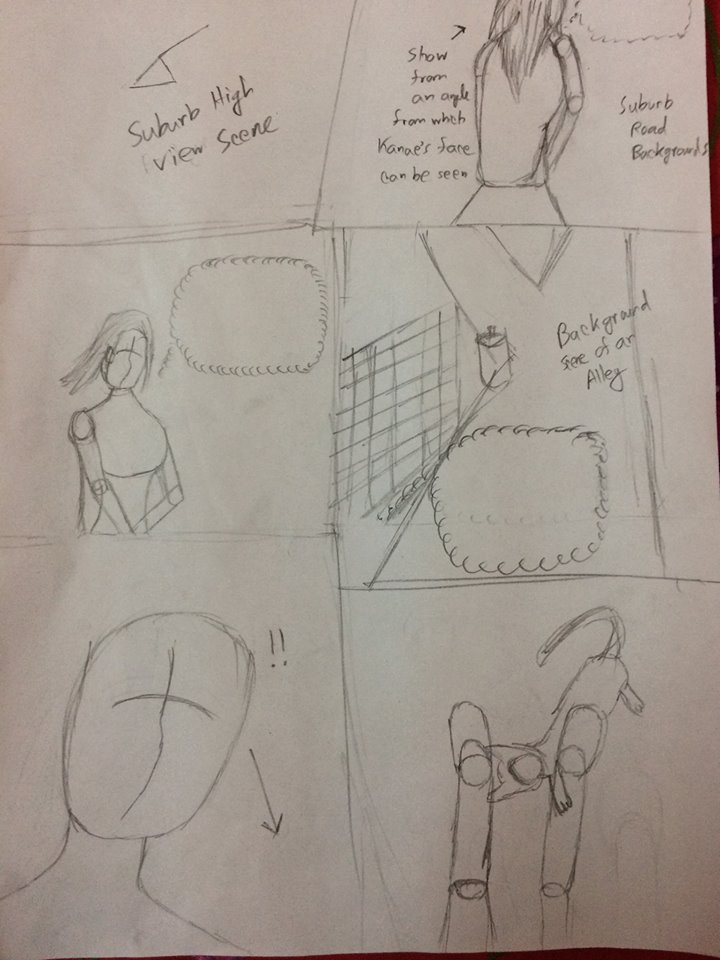 Suburb High
view scene
Show
from
an angle
from which
Kanae's face
can be seen
Suburb
Road
Backgrounds
Background
of an
Alley
!!